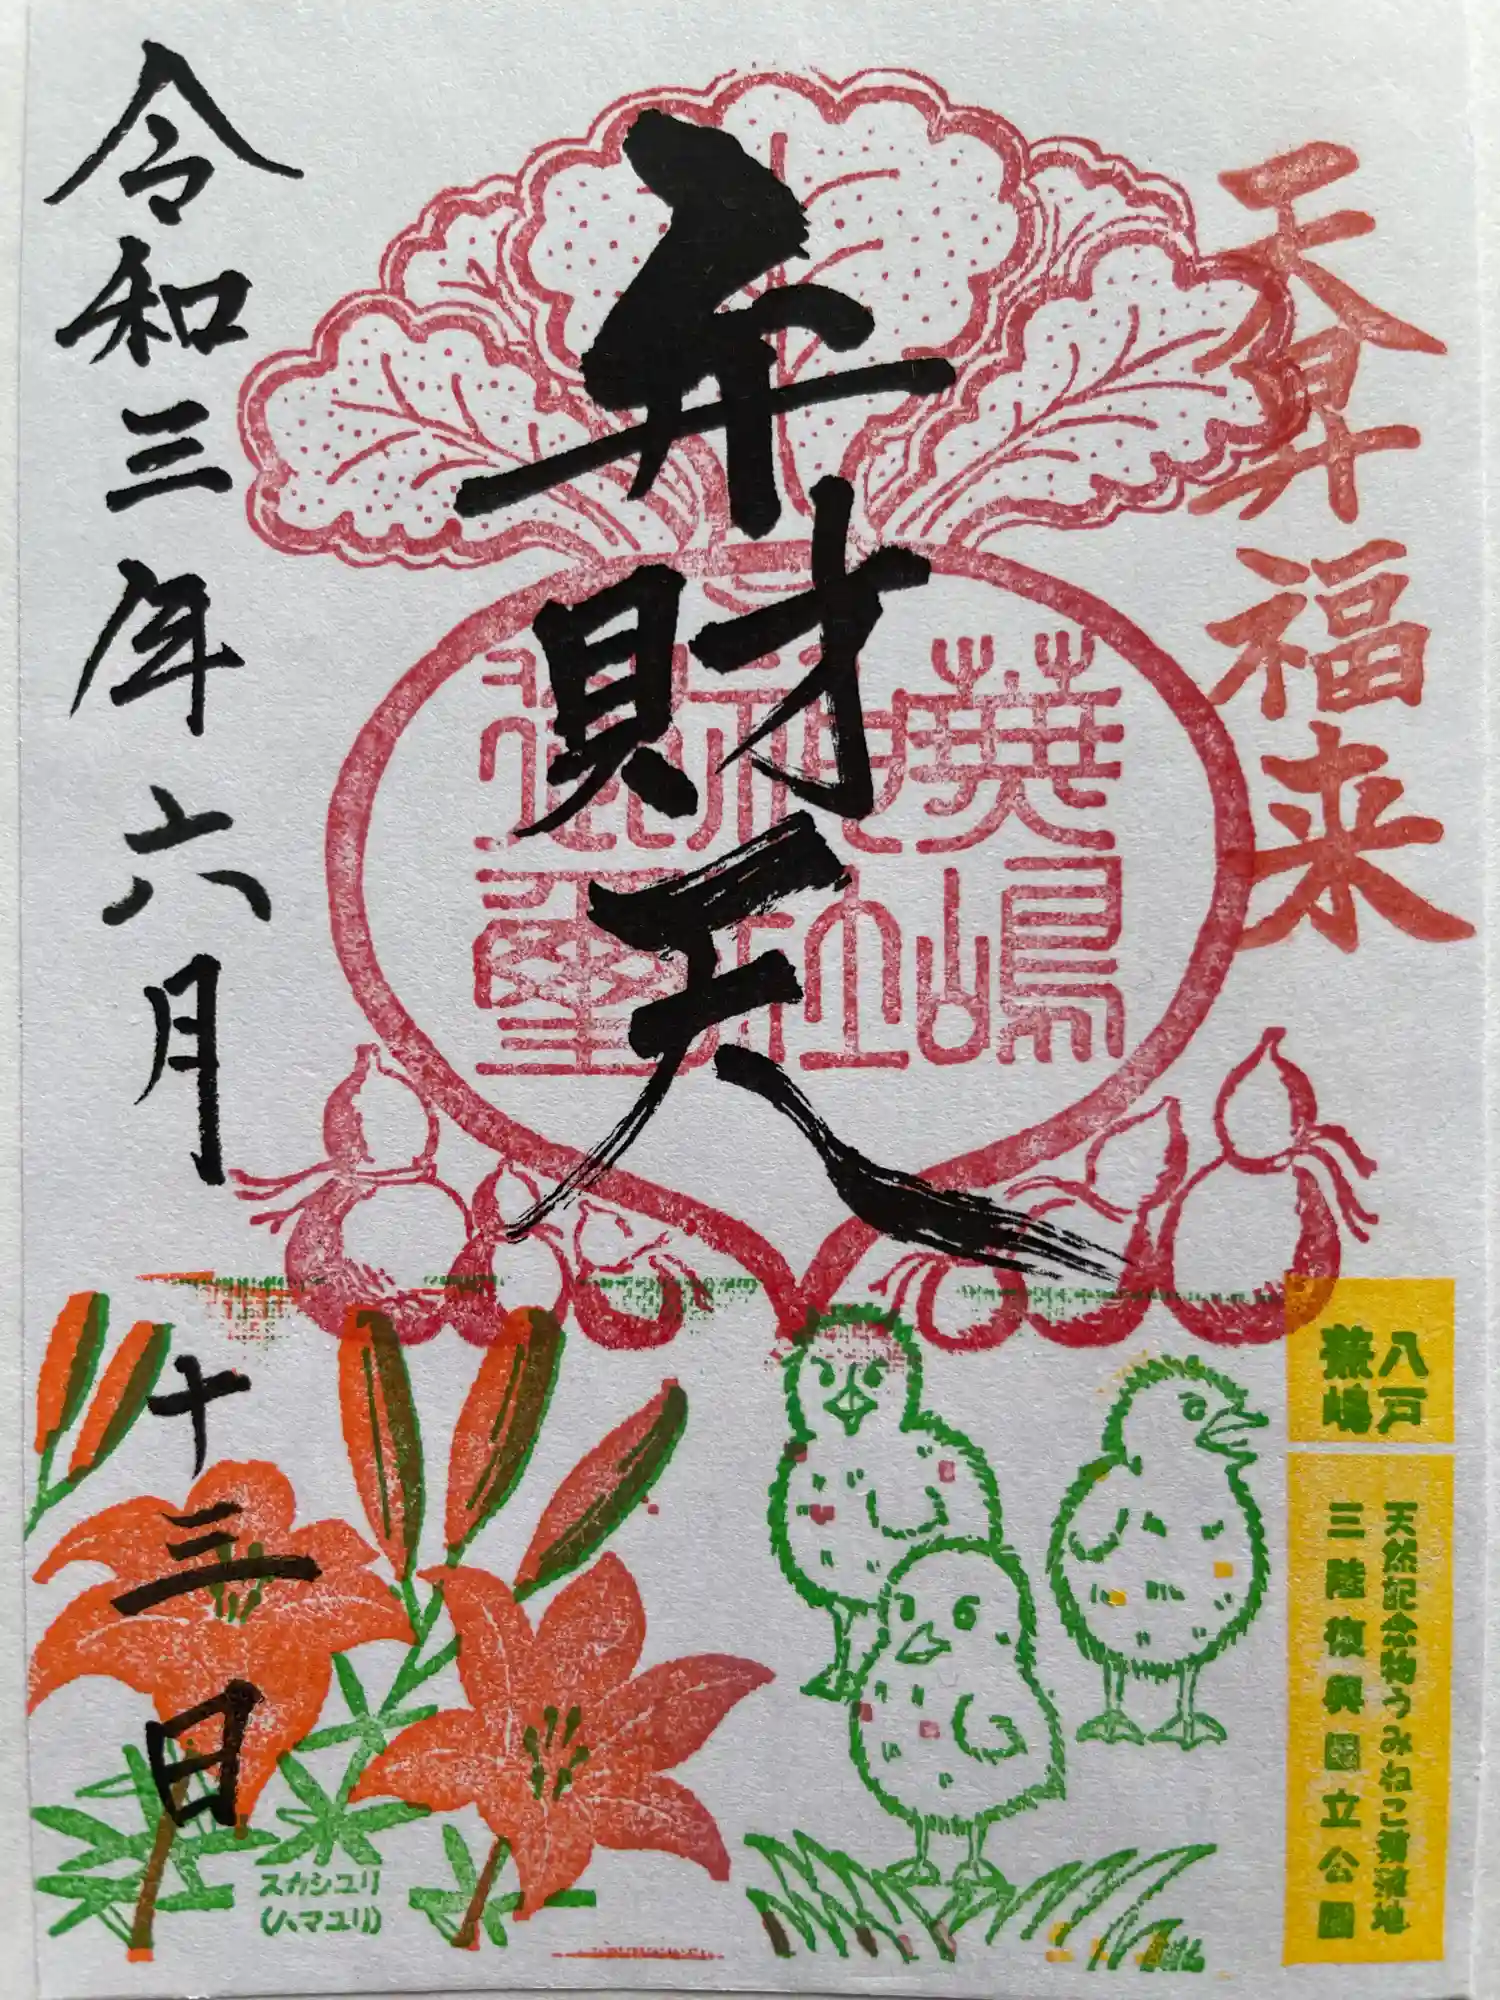 天昇 福来
弁財天
令和三年六月十三日
蕪嶋
神社
御璽
八戸
蕪嶋
天然記念物うみねこ蕃殖地
三陸復興国立公園
スカシユリ
(ハマユリ)